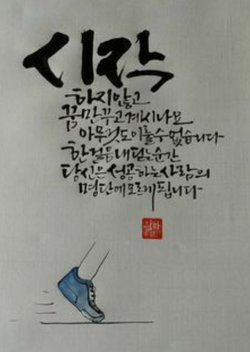 시작
하지 않고
꿈만 꾸고 계시나요
아무것도 이룰 수 없습니다
한 걸음 내딛는 순간
당신은 성공하는 사람의
명단에 오르게 됩니다